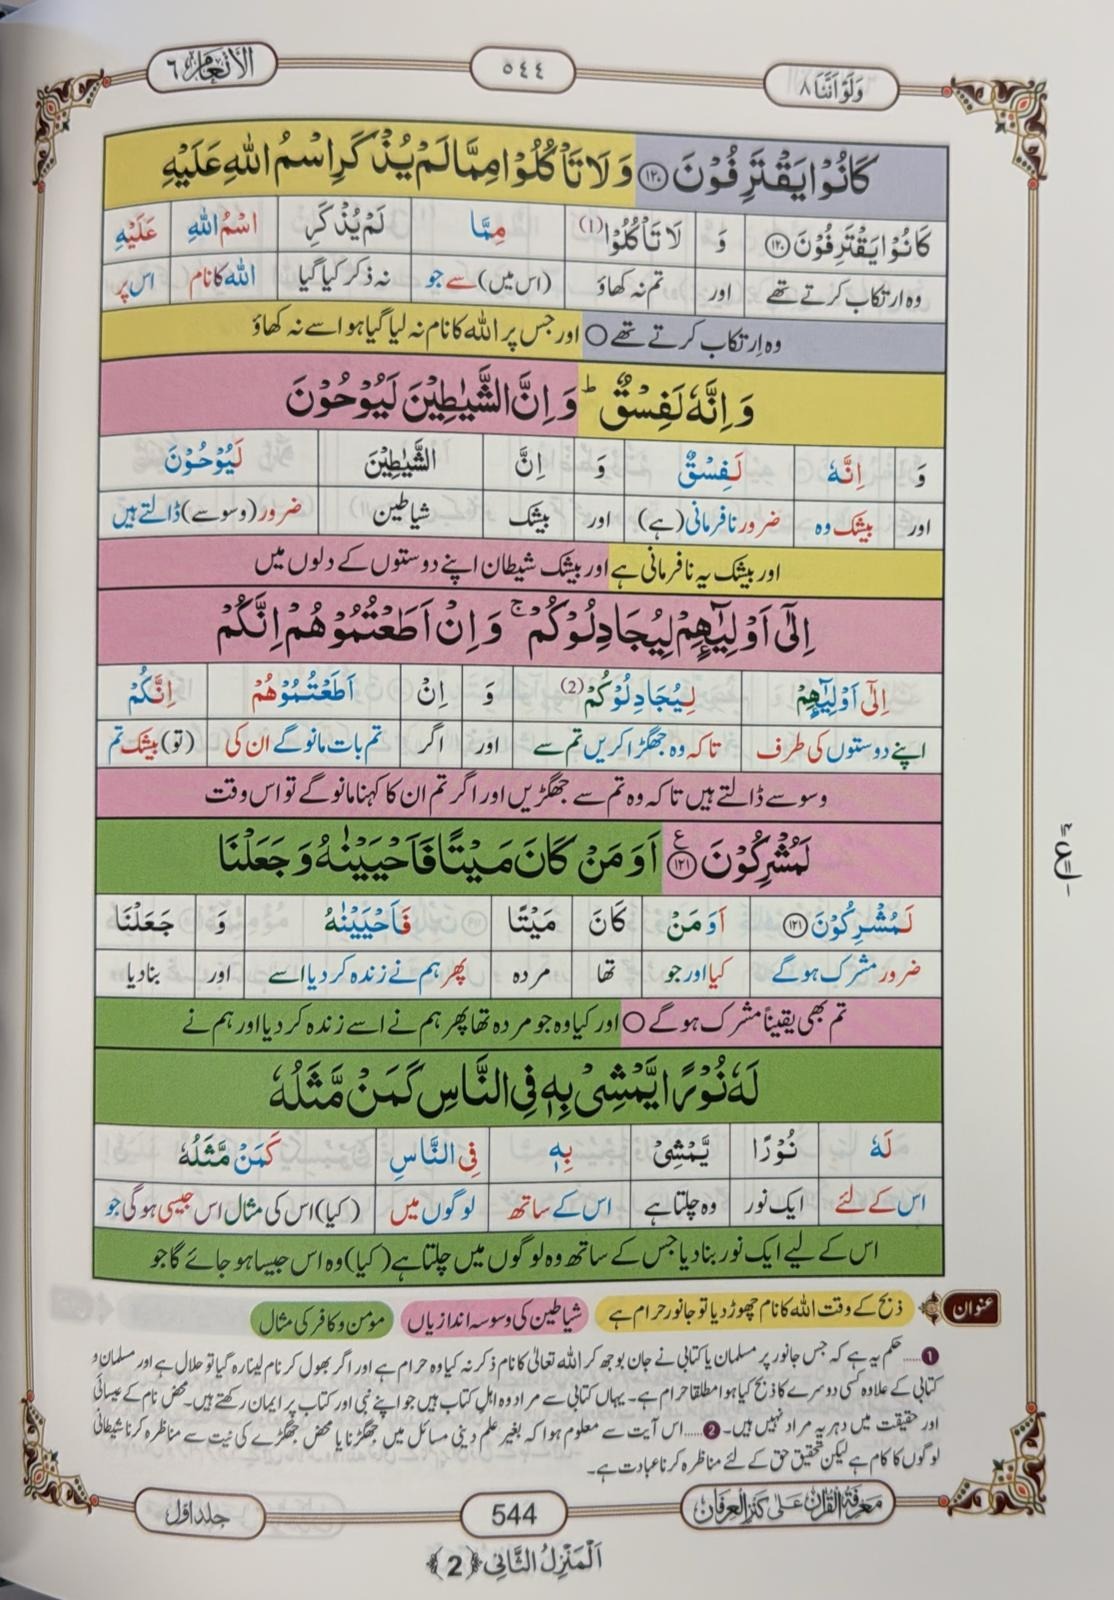 وَلَوْ اَنَّنَا ٨
٥٤٤
الْاَنْعَام ٦
كَانُوْا یَقْتَرِفُوْنَ ﴿۱۲۰﴾ وَ لَا تَاْكُلُوْا مِمَّا لَمْ یُذْكَرِ اسْمُ اللّٰهِ عَلَیْهِ
كَانُوْا یَقْتَرِفُوْنَ ﴿۱۲۰﴾ وَ لَا تَاْكُلُوْا (1) مِمَّا لَمْ یُذْكَرِ اسْمُ اللّٰهِ عَلَیْهِ
وہ ارتکاب کرتے تھے اور تم نہ کھاؤ (اس میں) سے جو نہ ذکر کیا گیا اللہ کا نام اس پر
وہ اِرتکاب کرتے تھے ○ اور جس پر اللہ کا نام نہ لیا گیا ہو اسے نہ کھاؤ
وَ اِنَّهٗ لَفِسْقٌ ؕ وَ اِنَّ الشَّیٰطِیْنَ لَیُوْحُوْنَ
وَ اِنَّهٗ لَفِسْقٌ وَ اِنَّ الشَّیٰطِیْنَ لَیُوْحُوْنَ
اور بیشک وہ ضرور نافرمانی (ہے) اور بیشک شیاطین ضرور (وسوسے) ڈالتے ہیں
اور بیشک یہ نافرمانی ہے اور بیشک شیطان اپنے دوستوں کے دلوں میں
اِلٰۤى اَوْلِیٰٓـٕهِمْ لِیُجَادِلُوْكُمْ ۚ وَ اِنْ اَطَعْتُمُوْهُمْ اِنَّكُمْ
اِلٰۤى اَوْلِیٰٓـٕهِمْ لِیُجَادِلُوْكُمْ (2) وَ اِنْ اَطَعْتُمُوْهُمْ اِنَّكُمْ
اپنے دوستوں کی طرف تاکہ وہ جھگڑا کریں تم سے اور اگر تم بات مانو گے ان کی (تو) بیشک تم
وسوسے ڈالتے ہیں تاکہ وہ تم سے جھگڑیں اور اگر تم ان کا کہنا مانو گے تو اس وقت
لَمُشْرِكُوْنَ ﴿۱۲۱﴾ ع اَوَ مَنْ كَانَ مَیْتًا فَاَحْیَیْنٰهُ وَ جَعَلْنَا
لَمُشْرِكُوْنَ ﴿۱۲۱﴾ اَوَ مَنْ كَانَ مَیْتًا فَاَحْیَیْنٰهُ وَ جَعَلْنَا
ضرور مشرک ہو گے کیا اور جو تھا مردہ پھر ہم نے زندہ کر دیا اسے اور بنا دیا
تم بھی یقیناً مشرک ہو گے ○ اور کیا وہ جو مردہ تھا پھر ہم نے اسے زندہ کر دیا اور ہم نے
لَهٗ نُوْرًا یَّمْشِیْ بِهٖ فِی النَّاسِ كَمَنْ مَّثَلُهٗ
لَهٗ نُوْرًا یَّمْشِیْ بِهٖ فِی النَّاسِ كَمَنْ مَّثَلُهٗ
اس کے لئے ایک نور وہ چلتا ہے اس کے ساتھ لوگوں میں (کیا) اس کی مثال اس جیسی ہو گی جو
اس کے لیے ایک نور بنا دیا جس کے ساتھ وہ لوگوں میں چلتا ہے (کیا) وہ اس جیسا ہو جائے گا جو
عنوان ذبح کے وقت اللہ کا نام چھوڑ دیا تو جانور حرام ہے شیاطین کی وسوسہ اندازیاں مومن و کافر کی مثال
1.....حکم یہ ہے کہ جس جانور پر مسلمان یا کتابی نے جان بوجھ کر اللہ تعالیٰ کا نام ذکر نہ کیا وہ حرام ہے اور اگر بھول کر نام لینا رہ گیا تو حلال ہے اور مسلمان و
کتابی کے علاوہ کسی دوسرے کا ذبح کیا ہوا مطلقا حرام ہے۔ یہاں کتابی سے مراد وہ اہل کتاب ہیں جو اپنے نبی اور کتاب پر ایمان رکھتے ہیں۔ محض نام کے عیسائی
اور حقیقت میں دہریہ مراد نہیں ہیں۔ 2.....اس آیت سے معلوم ہوا کہ بغیر علم دینی مسائل میں جھگڑنا یا محض جھگڑے کی نیت سے مناظرہ کرنا شیطانی
لوگوں کا کام ہے لیکن تحقیق حق کے لئے مناظرہ کرنا عبادت ہے۔
معرفۃ القرآن علی کنز العرفان
544
جلد اول
اَلْمَنْزِلُ الثَّانِی ﴿2﴾